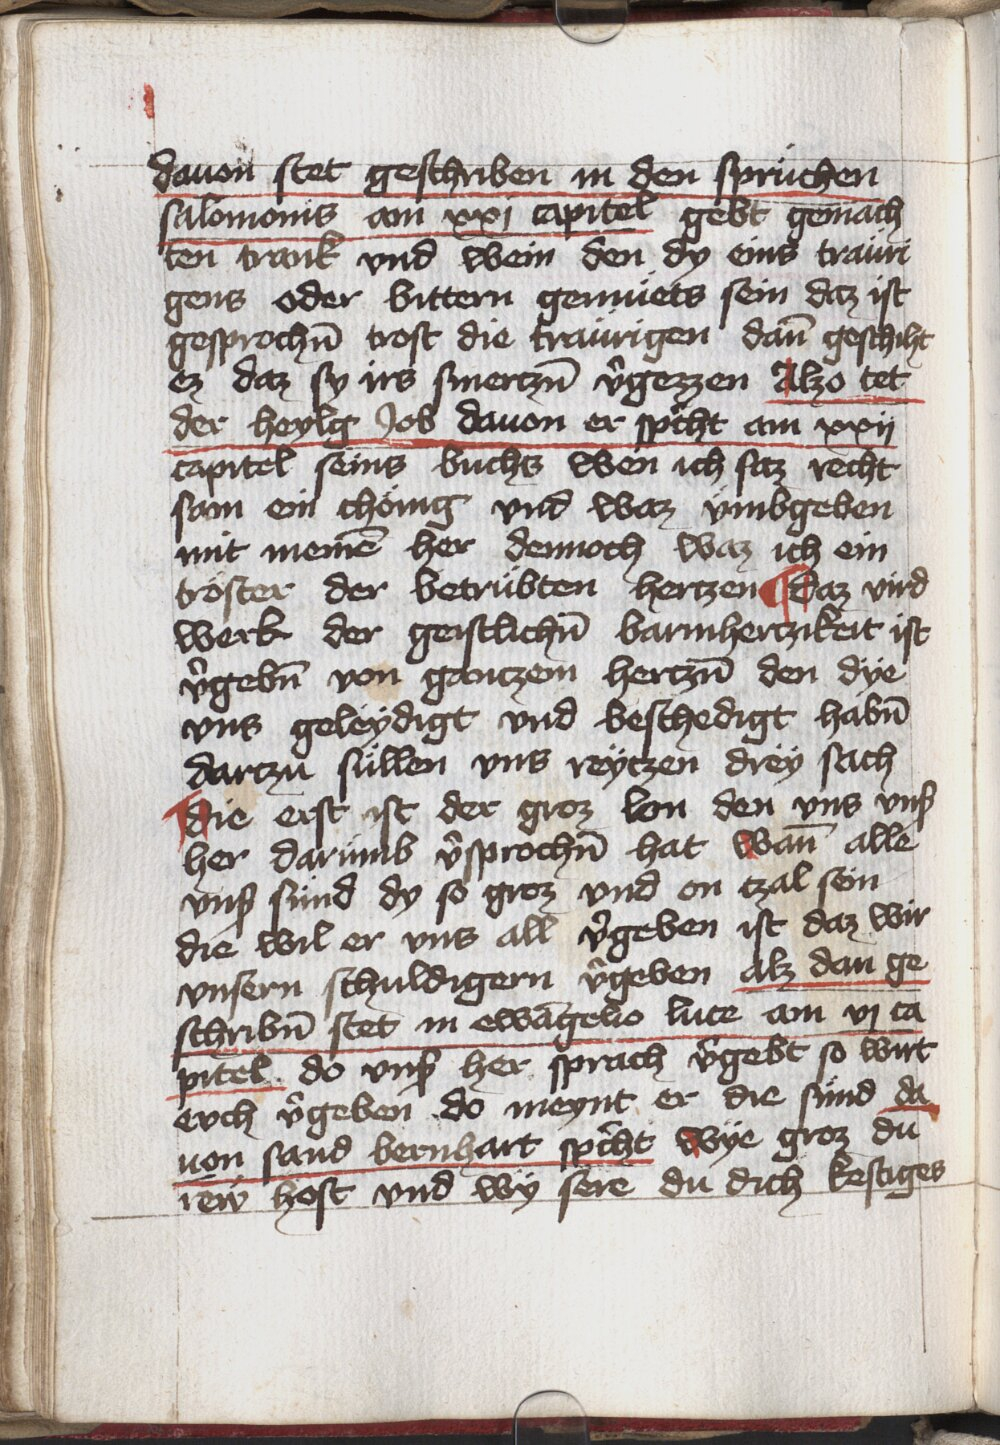 dauon stet geschriben in den sprüchen
salomonis am xxxj capitel gebt gemach
ten trank vnd wein den dy eins trauri
gens oder bittern gemüets sein daz ist
gesprochn̄ trost die traürigen dan̄ geschiht
ez daz sy irs smertzn̄ v̄gezzen Alzo tet
der heylg Job dauon er sp̄icht am xxij
capitel seins buchs wen ich saz recht
sam ein chönig vnd waz vmbgeben
mit meinē her dennoch waz ich ein
tröster der betrübten hertzen ¶ Daz vird
werk der geistlichn̄ barmhertzikeit ist
v̄gebn̄ von gantzem hertzn̄ den dye
vns geleydigt vnd beschedigt habn̄
dartzu süllen vns reytzen drey sach
¶ die erst ist der groz lon den vns vnß
her darümb v̄sprochn̄ hat wan̄ alle
vnß sünd dy so groz vnd on tzal sein
die wil er vns all v̄geben ist daz wir
vnsern schuldigern v̄geben alz dan ge
schribn̄ stet in ewāgelio luce am vj ca
pitel do vnß her sprach v̄gebt so wirt
evch v̄geben do meynt er die sünd da
uon sand bernhart sp̄icht wye groz du
rew host vnd wy sere du dich kestiges